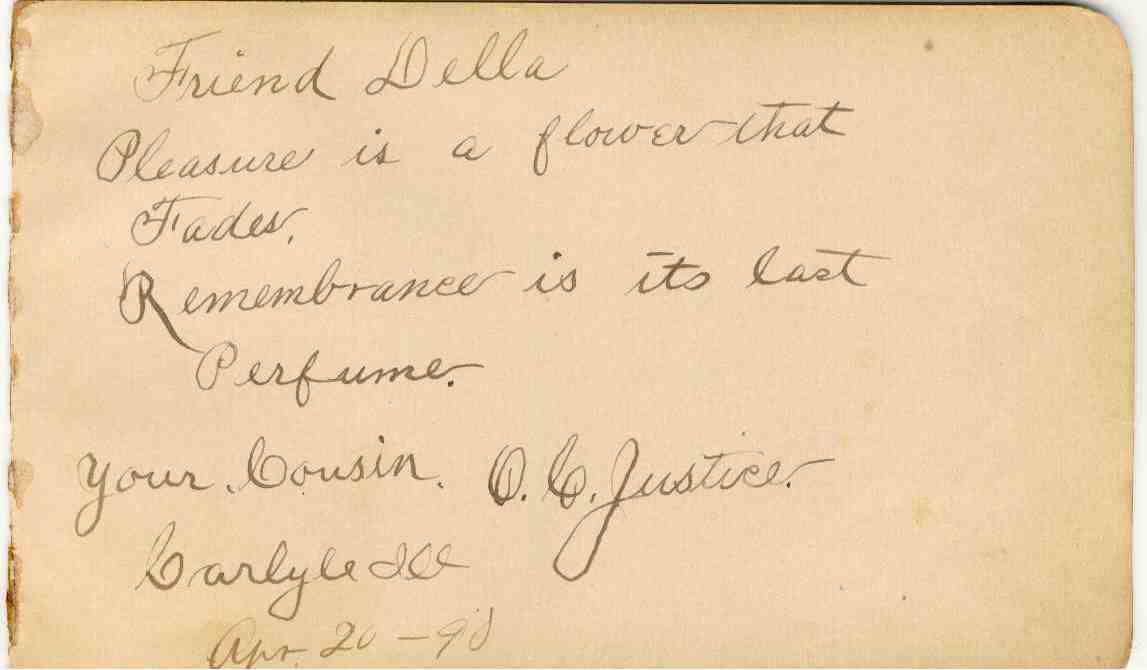 Friend Della
Pleasure is a flower that
Fades.
Remembrance is its last
Perfume.
Your Cousin. O. C. Justice.
Carlyle Ill
Apr 20 - 98